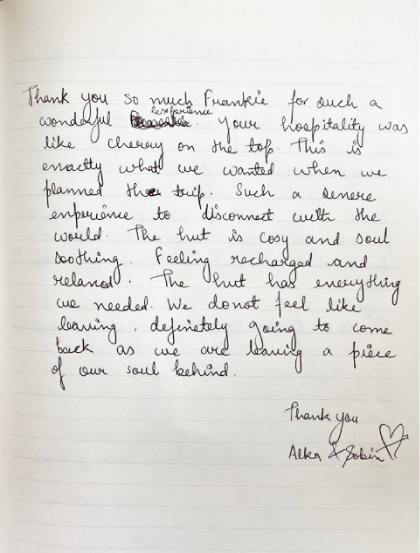 Thank you so much Frankie for such a
wonderful experience. Your hospitality was
like cherry on the top. This is
exactly what we wanted when we
planned the trip. Such a serene
experience to disconnect with the
world. The hut is cosy and soul
soothing. Feeling recharged and
relaxed. The hut has everything
we needed. We donot feel like
leaving, definetely going to come
back as we are leaving a piece
of our soul behind.
Thank you
Alka & Sobin